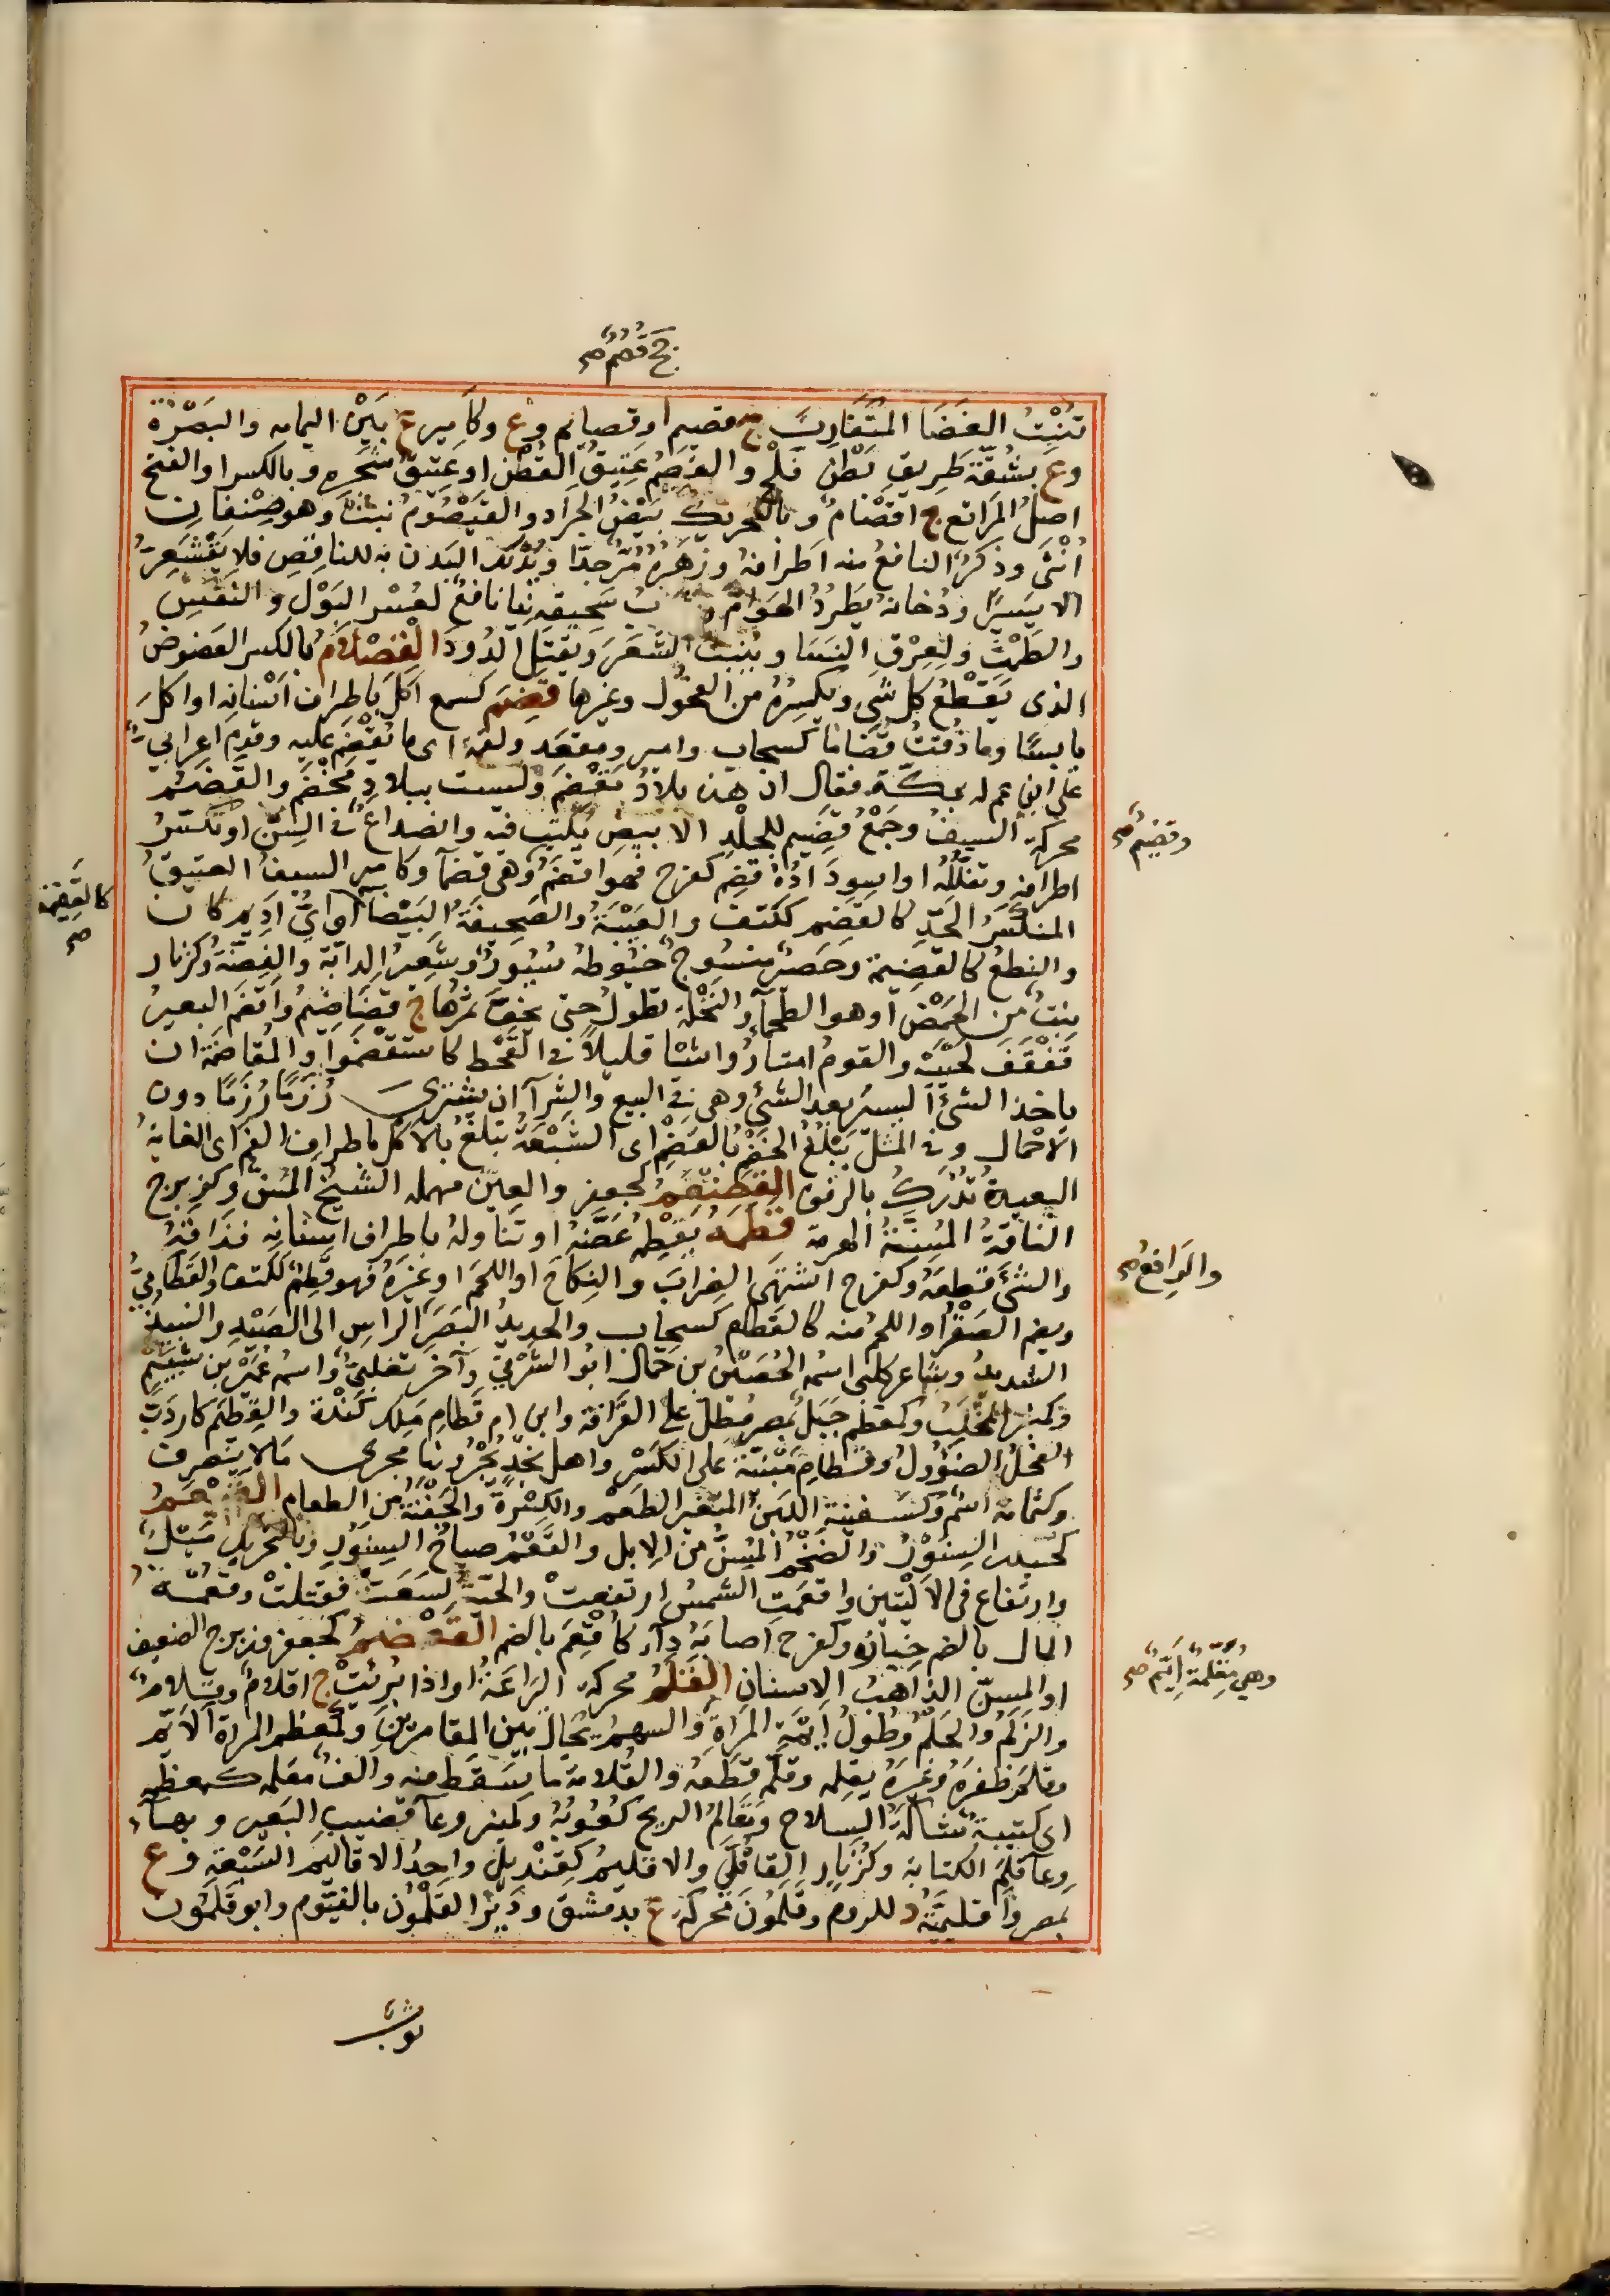 ج قُضُمٌ صح
تُنْبِتُ الغَضَا المُتَقَارِبُ ج قصيم او قصايم وع وكاميرع بَيْنَ اليمامه والبَصْرَة
وع بشُقّة طريق بَطْن فَلْج والقَصْمُ عَتِيقُ القُطْن او عَتِيقُ شَجَره وبالكسر او الفتح
اصلُ المَراتع ج اقصْام وبالتحريك بَيْضُ الجَراد والقَيْصُومُ نبت وهو صِنْفَان
اُنْثَى وذَكَرٌ النافع منه اطرافهُ وزَهْرُهُ مُرٌّ جدّا ويُدْلَك البَدن به للنافِضِ فلا يَقْشَعِرُّ
الا يَسيرًا ودُخانهُ يَطرُدُ الهَوامّ بُ سَحِيقِهِ نِيّا نافع لعُسْر البَوْل والنفَسِ
والطَمْث ولعِرْق النَسَا ويُنبت الشعَرَ ويقتل الدُودَ القِصْلامُ بالكسر العَضوضُ
الذى يَقْطعُ كل شى ويكسِرُهُ من الفحول وغيرها قضِمَ كسمع اكلَ باطراف اَسْنانِه او اكلَ
يابسًا وما ذُقتُ قَضَامًا كسحاب وامير ومقعَد ولقمة اى ما يُقْضَم عليه وقدِم اعرابىٌّ
على ابن عم له بمكّة فقال ان هذه بلادُ مَقْضَم ولَيست ببلادِ مَخْضَم والقَضَمُ
محركة السيفُ وجَمْعُ قَضِيم للجِلْدِ الابيضِ يُكتب فيه وانصداعٌ فى السِنّ او تكسّرُ
اطرافِهِ وتفَلّلُهُ او اسوِدادُهُ قضِمَ كفرح فهوَ اقضَمُ وهى قَضمآ وكامير السيفُ العتيقُ
المنكسِرُ الحَدّ كالقَضِم ككتف والعَيْبَةُ والصَحيفةُ البَيْضا او اىُّ اَديم كان
والنِطعُ كالقضيمة وحَصير منسُوج خُيُوطه سُيُورٌ وشَعيرُ الدابّة والفِضّةُ وكزنار
نبتٌ من الحَمْض او هو الطَحمآ والنخلةُ تطولُ حتى يخِفَّ ثمَرُها ج قضَاضِيمُ واقضَم البعيرُ
قَفْقَفَ لَحْيَيْه والقومُ امتارُوا شيًا قليلاً فى القَحْط كاستقضموا والمُقاضَمَة ان
ياخذ الشىَٔ اليسير بعد الشىِٔ وهى فى البيع والشرآ ان يشترىَ رُزَمًا رُزَمًا دون
الاَحْمال وفى المثل يَبْلُغُ الخَضْمُ بالقَضْمِ اى الشَبْعَةُ تبلَغُ بالاكل باطراف الفم اى الغايةُ
البعيدةُ تُدْرَكُ بالرفق القِضْعَمُ كجعفر والعين مهمله الشيخُ المُسنّ وكزبرج
الناقةُ المُسِنَّةُ الهرمة قطَمَهُ يَقطِمُهُ عَضَّهُ او تَناولهُ باطراف اسنانِه فذاقَهُ
والشىَٔ قطعَهُ وكفرح اشتهَى الضِرابَ والنِكاحَ او اللحمَ او غيرَه فهو قَطِمٌ ككتف والقَطامِىُّ
ويضم الصَقْرُ او اللحِمُ منه كالقطام كسحاب والحديدُ البَصَرِ الرافِعُ الراسِ الى الصَيْدِ والنبيذُ
الشديدُ وشاعر كلبى اسْمُهُ الحُصَيْنُ بن جمال ابُو الشَرْقى وآخر تغلبىٌّ واسمه عُمَيْر بن شُيَيْم
وكمنبر المِخلَبُ وكمعظم جَبَلٌ بمصر مُطلّ على القَرَافة وابن ام قطامِ مَلِك كَنْدة والقِطْيَم كاردَبّ
الفحلُ الصَؤُولُ وقطامِ مَبْنيّة على الكسْر واهل نَجْدٍ يُجْرُونها مجرى مَا لا ينصرف
وكثمامة اسْمٌ وكسفينة اللبَنُ المتغيرُ الطَعْم والكِسْرةُ والحَفْنَةُ من الطعام القَعْمُ
كحيدر السِنَّوْرُ والضَخْمُ المُسِنُّ من الابل والقَعْمُ صِياحُ السِنَّورِ وبالتحريك مَيَلٌ
وارتفاع فى الاَلْيَتين واقعَمَتِ الشمسُ ارتفعتْ والحيّةُ لسَعَتْ فقتلتْ وقُعْمَةُ
المال بالضم خِيَارُه وكفرح اصابَهُ داء كاُقْعِمَ بالضم القَعْضَمُ كجعفر وزبرج الضعيف
او المسِنّ الذاهبُ الاسنانِ القَلَمُ محركة اليَراعَةُ او اذا بُرِيَتْ ج اقلامٌ وقِلامٌ
والزَلَمُ والجَلَمُ وطُولُ اَيْمَةِ المَراةِ وهىَ مُقَلَّمةٌ اَيّمٌ والسهمُ يُجالُ بين المقامرينَ وكمعظم المراة الايّم
وقلَمَ ظفرَهُ وغيرَهُ يقلِمه وقلّم قطعَهُ والقُلامة ما يَسقَط منه والف مقلمه كمعظمة
اى كتيبةٌ شاكةُ السِلاح ومَقالمُ الرمح كُعُوبُهُ وكمنبر وعآ قضيب البَعير وبهآء
وعآ قَلَمِ الكتابة وكزنار القاقُلَّى والاقليمُ كقِنْديل واحِدُ الاقاليم السَبْعَةِ وع
بمصر واَقليمِيَّةُ د للروم وقلَمُونَ محركة ع بدمشق ودَيْرُ القَلَمُون بالفَيُّوم وابو قلَمُون
وقضيمٌ صح
كالقضيمة صح
والرافِعُ صح
وهىَ مُقَلَّمةٌ اَيّمٌ صح
ثوب